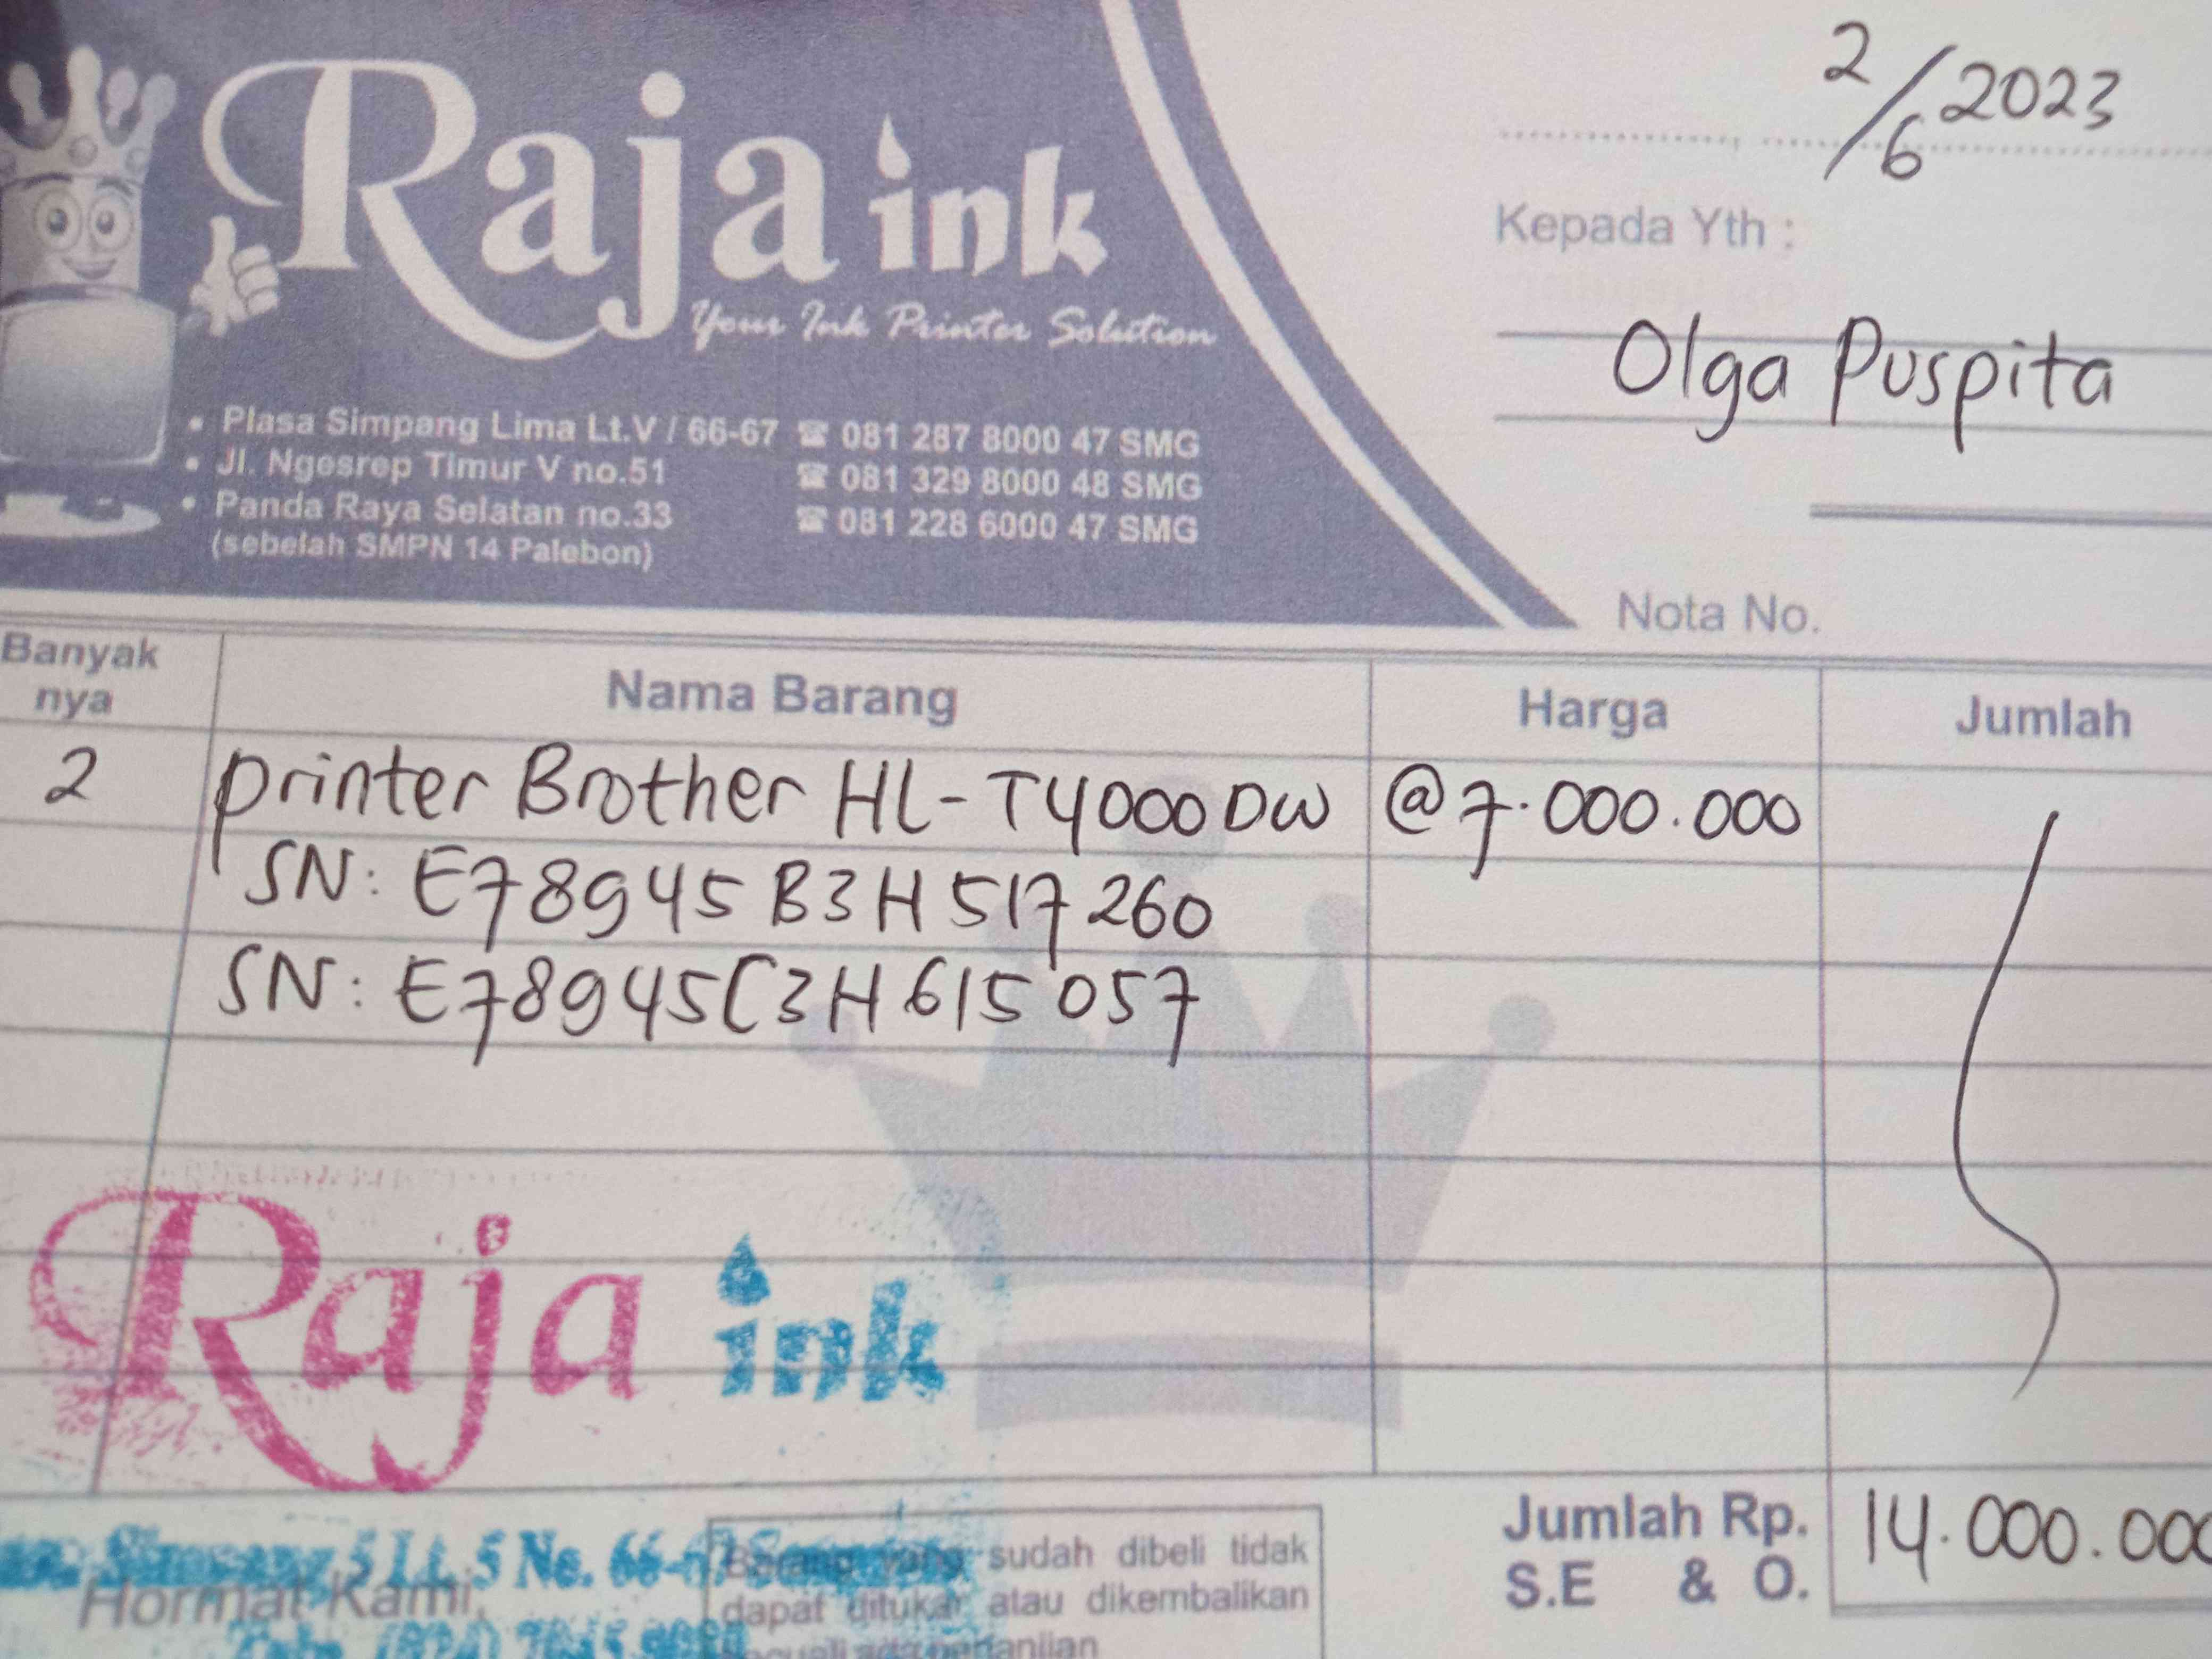 Raja ink
Your Ink Printer Solution
• Plasa Simpang Lima Lt.V / 66-67 ☎ 081 287 8000 47 SMG
• Jl. Ngesrep Timur V no.51 ☎ 081 329 8000 48 SMG
• Panda Raya Selatan no.33 ☎ 081 228 6000 47 SMG
(sebelah SMPN 14 Palebon)
2/6 2023
Kepada Yth :
Olga Puspita
Nota No.
Banyak nya Nama Barang Harga Jumlah
2 printer Brother HL-T4000DW @7.000.000
SN: E78945B3H517260
SN: E78945C3H615057
Raja ink
Simpang 5 Lt. 5 No. 66-67
Hormat Kami,
Barang yang sudah dibeli tidak
dapat ditukar atau dikembalikan
Jumlah Rp. 14.000.000
S.E & O.